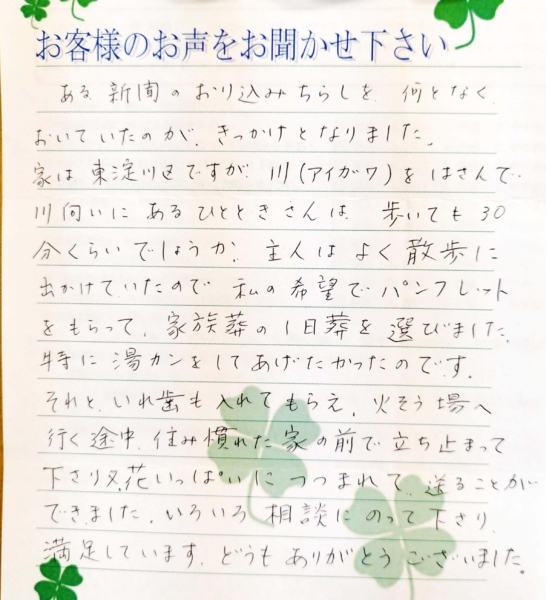 お客様のお声をお聞かせ下さい
ある新聞のおり込みちらしを、何となく
おいていたのが、きっかけとなりました。
家は東淀川区ですが、川(アイガワ)をはさんで
川向いにあるひとときさんは、歩いても30
分くらいでしょうか?主人はよく散歩に
出かけていたので私の希望でパンフレット
をもらって、家族葬の1日葬を選びました。
特に湯カンをしてあげたかったのです。
それと、いれ歯も入れてもらえ、火そう場へ
行く途中、住み慣れた家の前で立ち止まって
下さり又、花いっぱいにつつまれて、送ることが
できました。いろいろ相談にのって下さり、
満足しています。どうもありがとうございました。